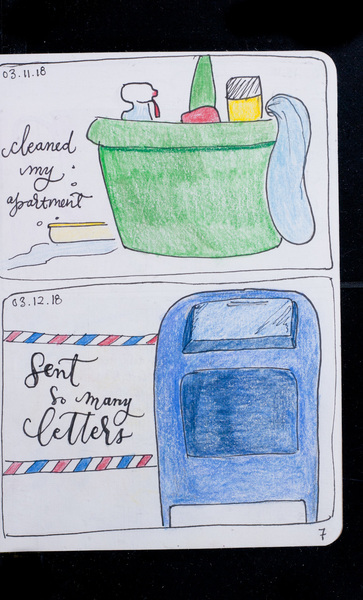 03.11.18
cleaned
my
apartment
03.12.18
Sent
So many
letters
7